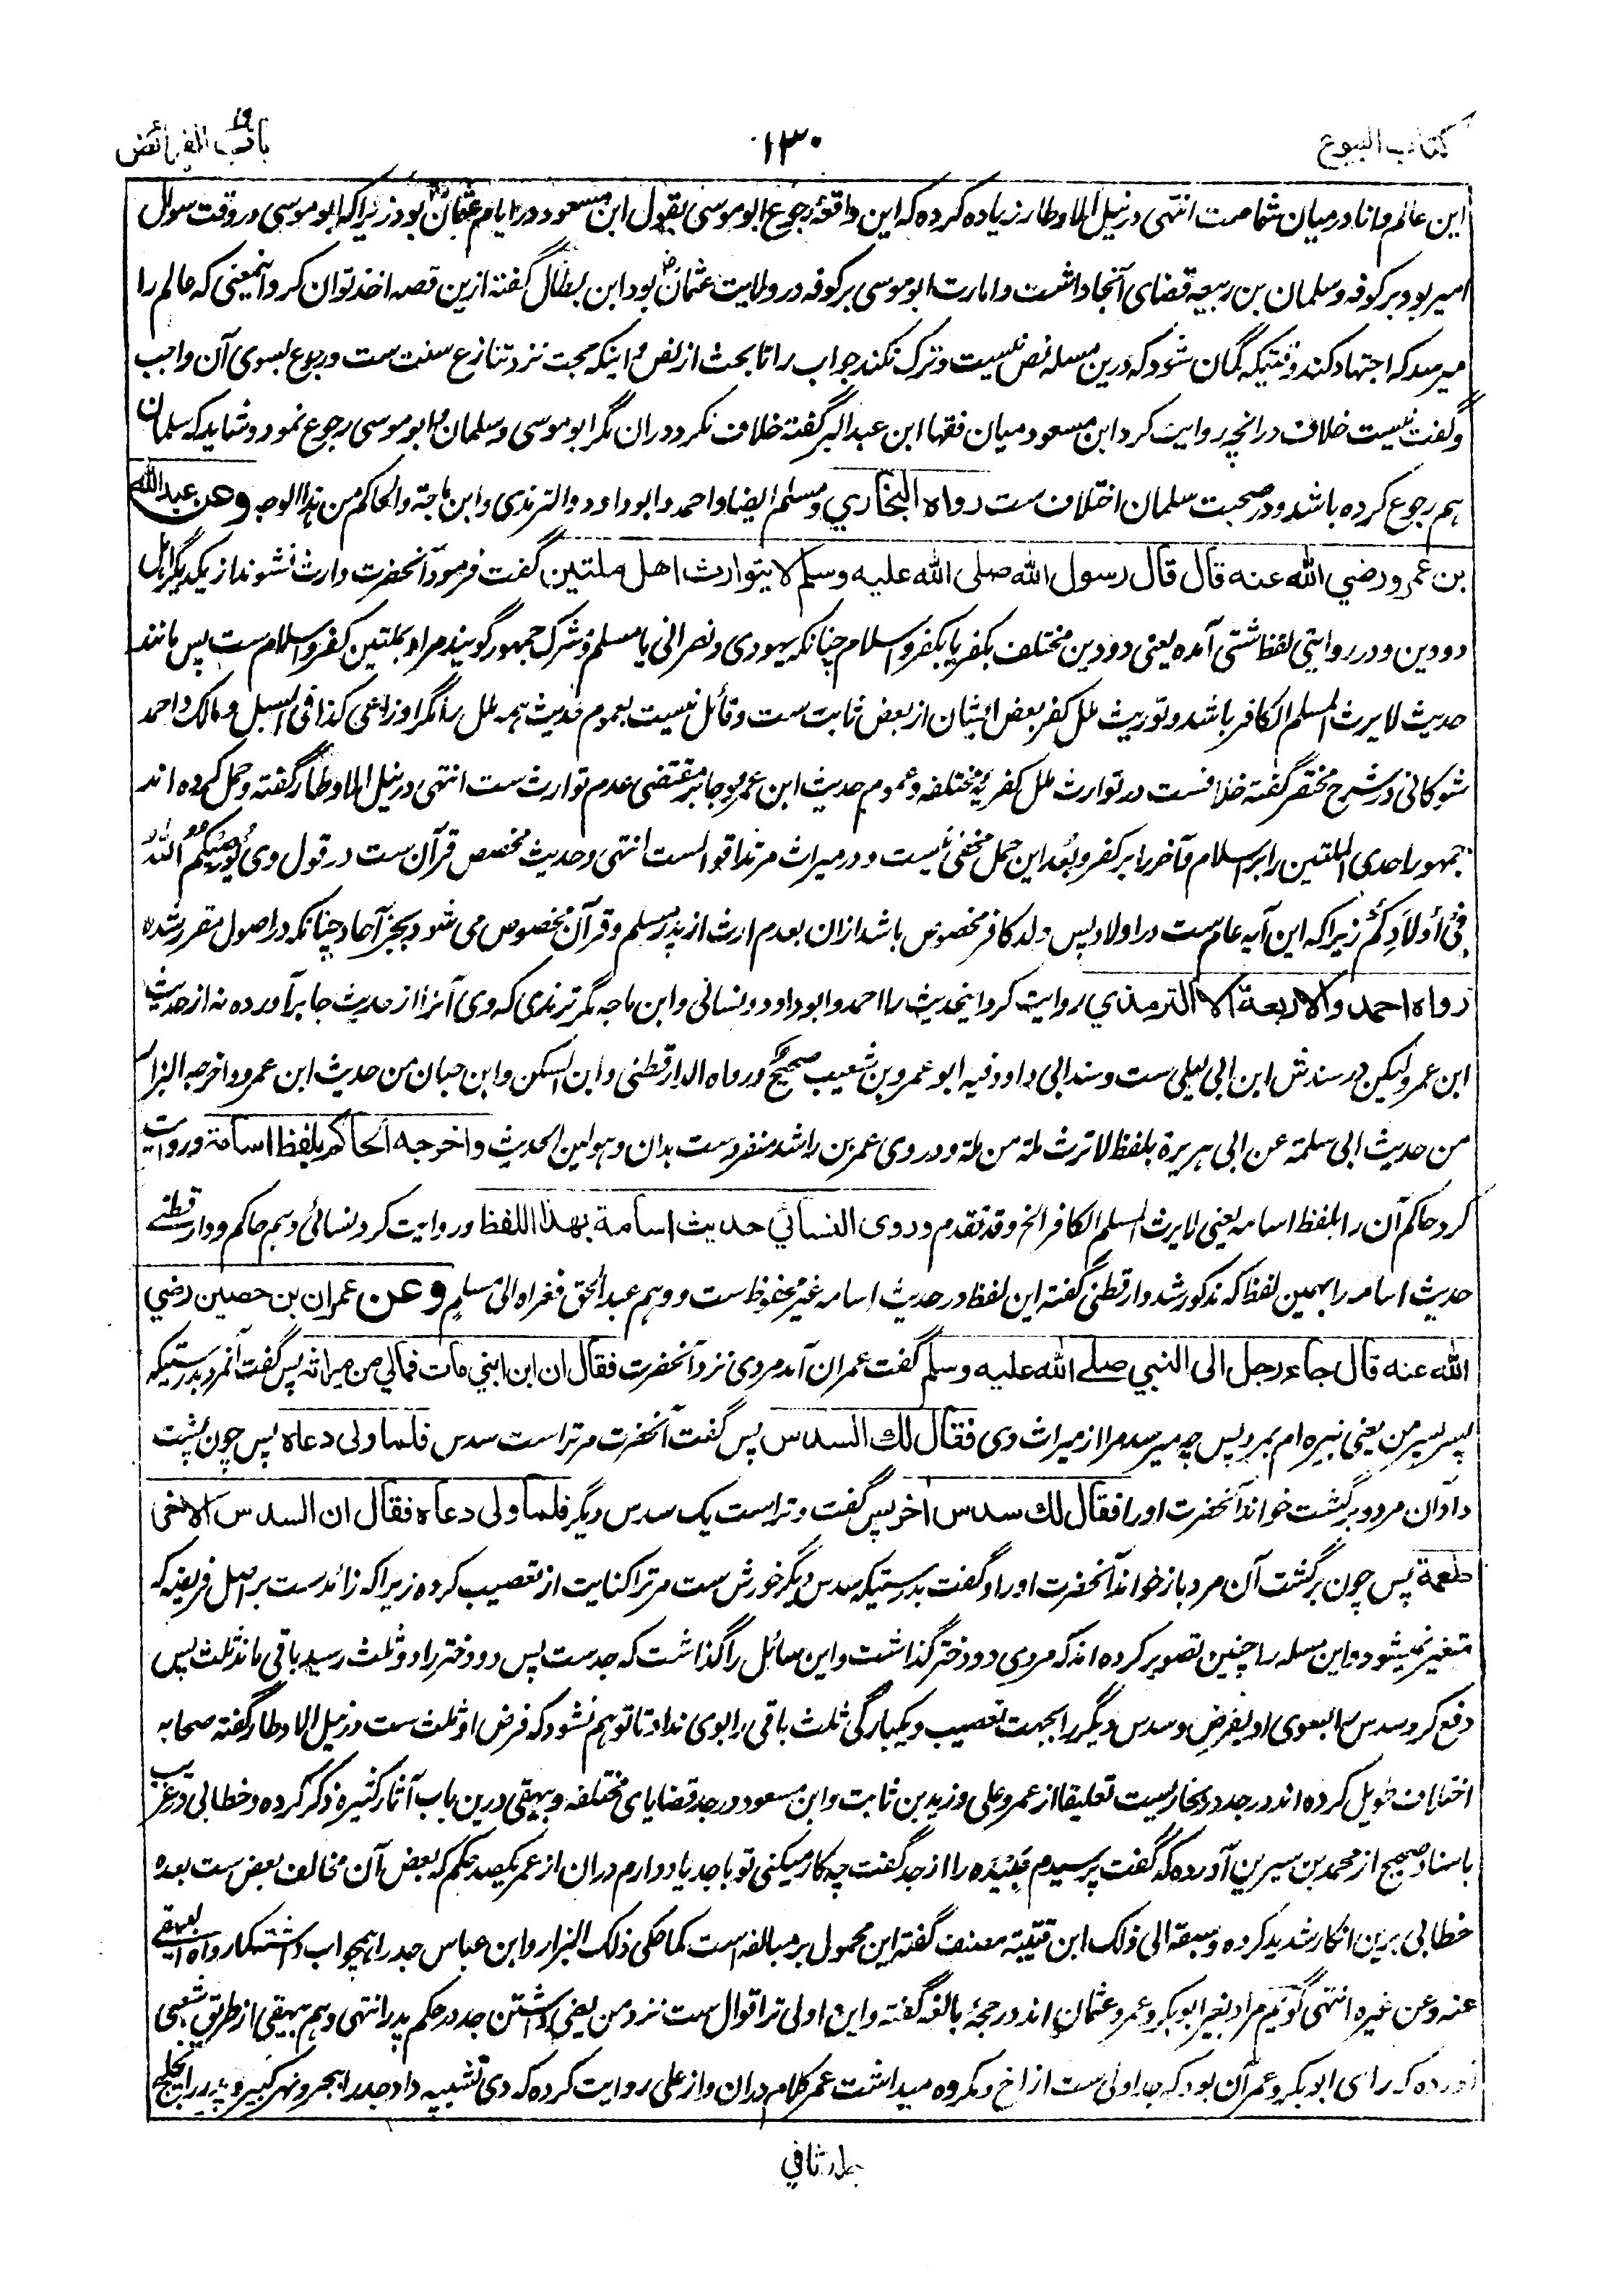 کتاب البیوع
۱۳۰
باب الفرائض
این عالم دانا در میان شماست انتهی در نیل الاوطار زیاده کرده که این واقعۀ رجوع ابو موسی بقول ابن مسعود در ایام عثمان بود زیرا که ابو موسی در وقت سوال
امیر بود بر کوفه و سلمان بن ربیعه قضای آنجا داشت و امارت ابو موسی بر کوفه در ولایت عثمان بود ابن بطال گفته ازین قصه اخذ توان کرد اینمعنی که عالم را
میرسد که اجتهاد کند وقتیکه گمان شود که درین مسله نص نیست و ترک نکند جواب را تا بحث از نص و اینکه حجت نزد تنازع سنت ست و رجوع بسوی آن واجب
و گفت نیست خلاف در انچه روایت کرد ابن مسعود میان فقها ابن عبد البر گفته خلاف نکرد دران مگر ابو موسی و سلمان و ابو موسی رجوع نمود و شاید که سلمان
هم رجوع کرده باشد و در صحبت سلمان اختلاف ست رواه البخاري ومسلم ایضا واحمد وابو داود والترمذی وابن ماجة والحاکم من هذا الوجه وعن عبد الله
بن عمرو رضي الله عنه قال قال رسول الله صلى الله عليه وسلم لا يتوارث اهل ملتين گفت فرمود آنحضرت وارث نشوند از یکدیگر اهل
دو دین و در روایتی لفظ شتی آمده یعنی دو دین مختلف بکفر یا بکفر و اسلام چنانکه یهودی و نصرانی یا مسلم و مشرک جمهور گویند مراد بملتین کفر و اسلام ست پس مانند
حدیث لا یرث المسلم الکافر باشد و توریث ملل کفر بعض ایشان از بعض ثابت ست و قائل نیست بعموم حدیث همه ملل را مگر اوزاعی کذا فی السبل و مالک و احمد
شوکانی در شرح مختصر گفته خلافست در توارث ملل کفریۀ مختلفه و عموم حدیث ابن عمر و جابر مقتضی عدم توارث ست انتهی در نیل الاوطار گفته و حمل کرده اند
جمهور احدی الملتین را بر اسلام و آخر را بر کفر و بُعد این حمل مخفی نیست و در میراث مرتد اقوالست انتهی و حدیث مخصص قرآن ست در قول وی يُوصِيكُمُ اللّٰهُ
فِيْ أَوْلَادِكُمْ زیرا که این آیه عام ست در اولاد پس ولد کافر مخصوص باشد ازان بعدم ارث از پدر مسلم و قرآن مخصوص می شود بخبر آحاد چنانکه در اصول مقرر شده
رواه احمد والاربعة الا الترمذي روایت کرد اینحدیث را احمد و ابو داود و نسائی و ابن ماجه مگر ترمذی که وی آنرا از حدیث جابر آورده نه از حدیث
ابن عمرو لیکن در سندش ابن ابی لیلی ست و سند ابی داود فیه ابو عمرو بن شعیب صحیح ورواه الدارقطنی وابن السکن وابن حبان من حدیث ابن عمرو واخرجه البزار
من حدیث ابی سلمة عن ابی هریرة بلفظ لا ترث ملة من ملة و در وی عمر بن راشد منفرد ست بدان وهو لین الحدیث واخرجه الحاكم بلفظ اسامة و روایت
کرد حاکم آن را بلفظ اسامه یعنی لا یرث المسلم الکافر الخ وقد تقدم وروى النسائي حديث اسامة بهذا اللفظ و روایت کرد نسائی و هم حاکم و دارقطنے
حدیث اسامه را بهمین لفظ که مذکور شد دارقطنی گفته این لفظ در حدیث اسامه غیر محفوظ ست و وهم عبد الحق فعزاه الی مسلم وعن عمران بن حصين رضي
الله عنه قال جاء رجل الى النبي صلے الله عليه وسلم گفت عمران آمد مردی نزد آنحضرت فقال ان ابن ابني مات فمالي من ميراثه پس گفت آنمرد بدرستیکه
پسر پسر من یعنی نبیره ام بمرد پس چه میرسد مرا از میراث وی فقال لك السدس پس گفت آنحضرت مر تراست سدس فلما ولى دعاه پس چون پشت
داد آن مرد و برگشت خواند آنحضرت او را فقال لك سدس اخر پس گفت و تراست یک سدس دیگر فلما ولى دعاه فقال ان السدس الاخى
طعمة پس چون برگشت آن مرد باز خواند آنحضرت او را و گفت بدرستیکه سدس دیگر خورش ست مر ترا کنایت از تعصیب کرده زیرا که زائد ست بر اصل فریضه که
متغیر نمیشود و این مسله را چنین تصویر کرده اند که مردی دو دختر گذاشت و این سائل را گذاشت که جدست پس دو دختر را دو ثلث رسید باقی ماند ثلث پس
دفع کرد سدس بسوی او بفرض و سدس دیگر را بجهت تعصیب و یکبارگی ثلث باقی را بوی نداد تا توهم نشود که فرض او ثلث ست در نیل الاوطار گفته صحابه
اختلاف طویل کرده اند در جد در بخاریست تعلیقا از عمر و علی و زید بن ثابت و ابن مسعود در جد قضایای مختلفه و بیهقی درین باب آثار کثیره ذکر کرده و خطابی در غریب
باسناد صحیح از محمد بن سیرین آورده که گفت پرسیدم عَبِیْدَه را از جد گفت چه کار میکنی تو با جد یاد دارم دران از عمر یکصد حکم که بعض آن مخالف بعض ست بعده
خطابی برین انکار شدید کرده و سبقه الی ذلک ابن قتیبة مصنف گفته این محمول بر مبالغه است کما حکی ذلک البزار و ابن عباس جد را همچو اب داشته کما رواه البیهقے
عنه وعن غیره انتهی گوئیم مراد بغیر ابو بکر و عمر و عثمان اند در حجۀ بالغه گفته و این اولی تر اقوال ست نزد من یعنی داشتن جد در حکم پدر انتهی و هم بیهقی از طریق شعبی
آورده که رای ابو بکر و عمر آن بود که جد اولی ست از اخ و مکروه میداشت عمر کلام دران و از علی روایت کرده که وی تشبیه داد جد را ببحر و نهر کبیر و پدر را بخلیج
جلد ثانی